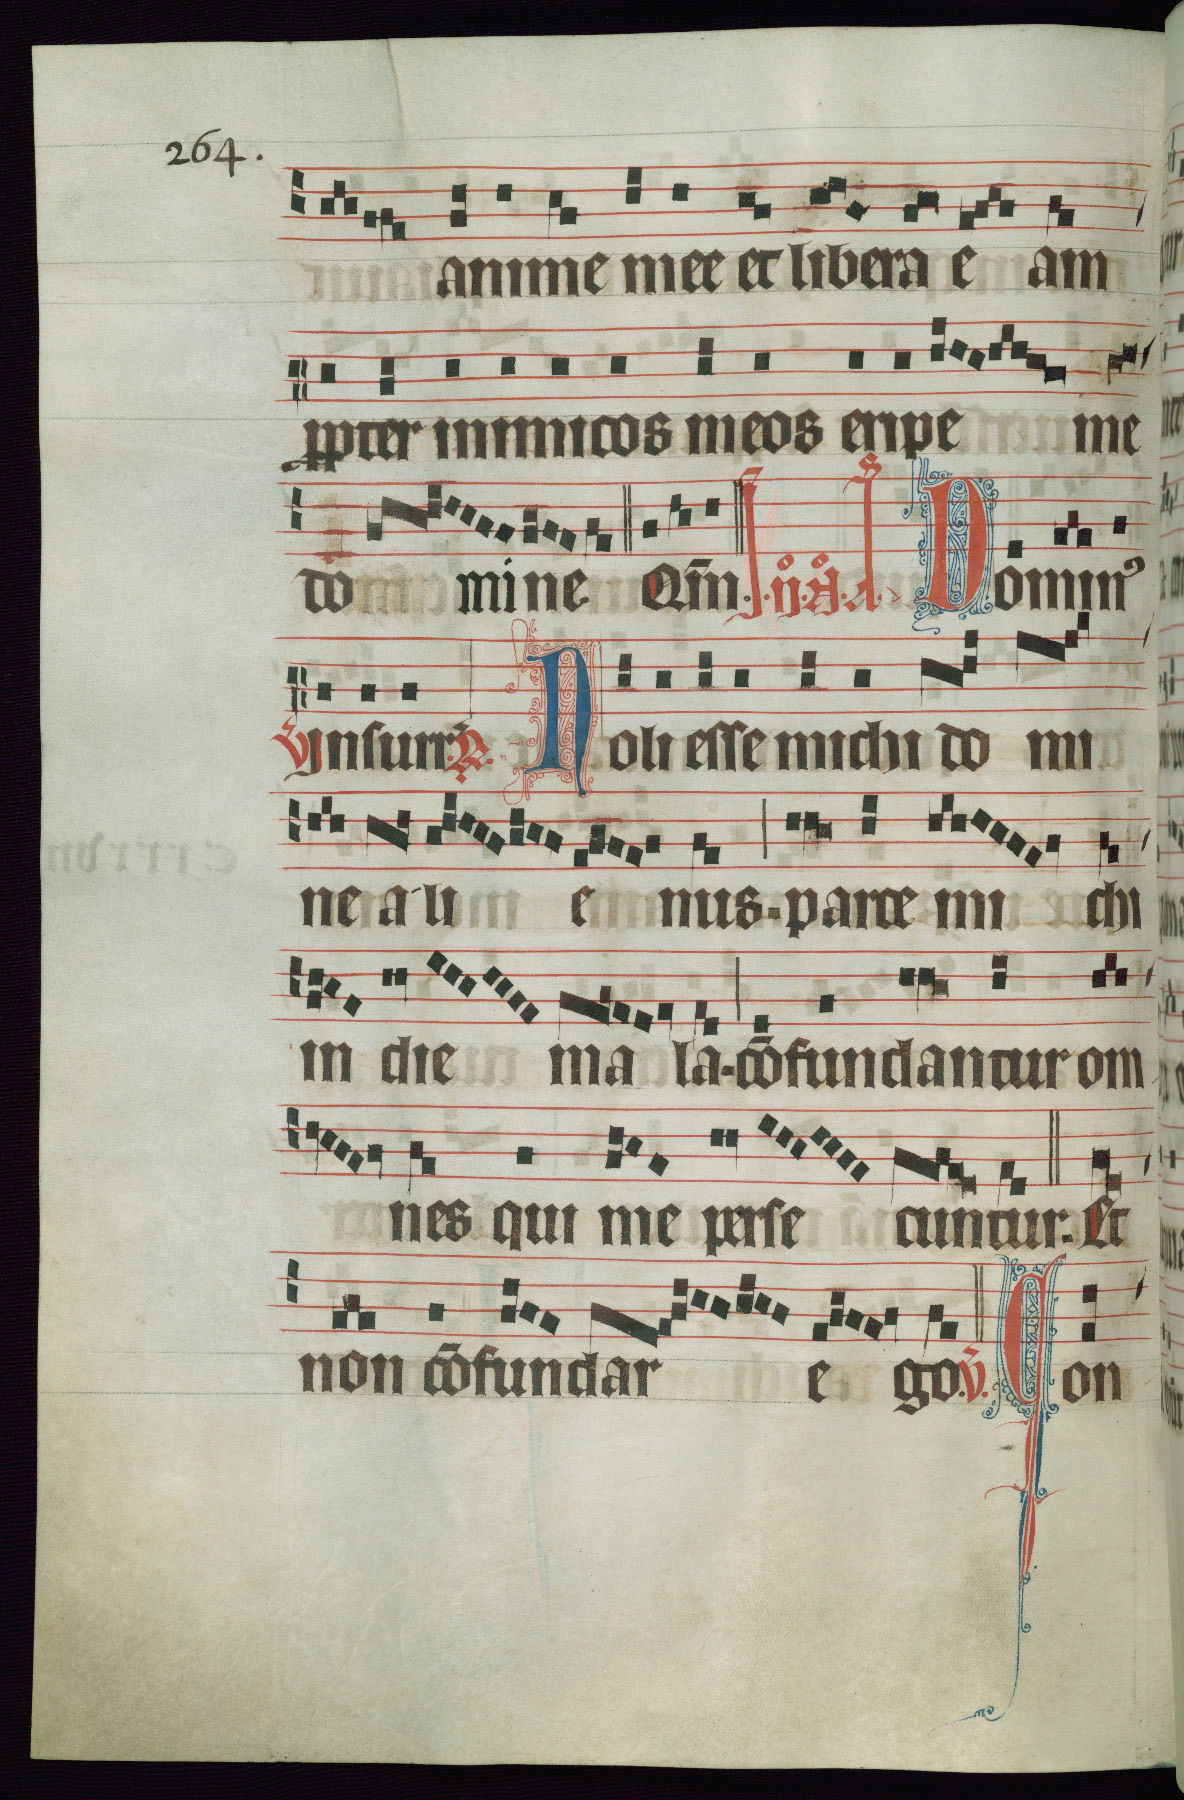 264.
anime mee et libera e am
ppter inimicos meos eripe me
do mi ne Qm̄. Dominꝰ
V̄ Insurr. R. Noli esse michi do mi
ne a li e nus. parce mi chi
in die ma la. cōfundantur om
nes qui me perse cuntur. Et
non cōfundar e go. V̄. Con